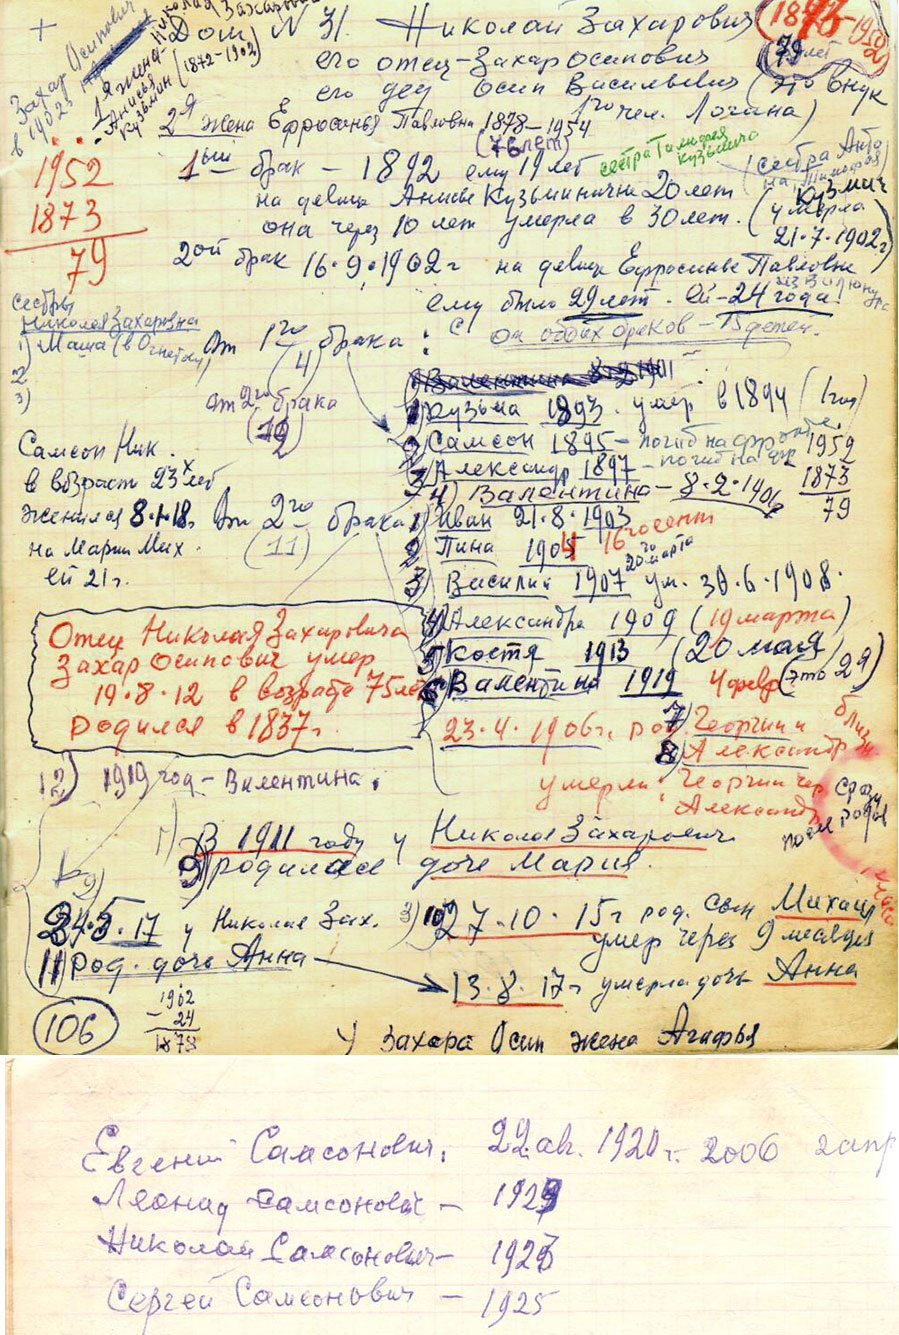 Николай Захаров
Захар Осипович
в 1902г
1я жена-
Анисья
Кузьмин
(1872-1902)
Дом N 31. Николай Захарович
1873-1952
79 лет
его отец-Захар Осипович
его дед Осип Васильевич (это внук
1го чел. Логина)
2я жена Ефросинья Павловна 1878-1954
(76 лет)
сестра Тимофея
Кузьмича
1952
1873
79
1ый брак - 1892 ему 19 лет
на девице Анисье Кузьминичне 20 лет
Кузьмич
она через 10 лет умерла в 30 лет. (умерла
21.7.1902г)
2ой брак 16.9.1902г на девице Ефросинье Павловне
ему было 29 лет. ей-24 года!
сестры
Николая Захаровича
1) Маша
2)
3)
от 1го брака:
(4)
от обоих браков - 15 детей.
от 2го брака
Валентина 8.2.1901
1) Кузьма 1893. умер в 1894 (1год)
2) Самсон 1895 - погиб на фронте.
3) Александр 1897 - погиб на фр
4) Валентина - 8.2.1901
1952
1873
79
Самсон Ник.
в возрасте 23х лет
женился 8.1.18г
на Марии Мих.
ей 21г.
От 2го брака
(11)
1) Иван 21.8.1903
2) Пина 1904 16го сент
3) Василий 1907 20го марта ум. 30.6.1908.
4) Александра 1909 (19 марта)
5) Костя 1913 (20 мая)
6) Валентина 1919 4 февр (это 2я)
Отец Николая Захаровича
Захар Осипович умер
19.8.12 в возрасте 75 лет
родился в 1837г.
23.4.1906г. род 7) Георгий и
8) Александр
умерли: Георгий чер
Александр
близн
сразу
после родов
12) 1919 год - Валентина.
1) В 1911 году у Николая Захарович
9) родилась дочь Мария.
2)
24.5.17 у Николая Зах.
11) род. дочь Анна
3) 10) 27.10.15г род. сын Михаил
умер через 9 месяцев
13.8.17г умерла дочь Анна
106
1902
- 24
1878
У Захара Осип жена Агафья
Евгений Самсонович, 22.ав. 1920г.- 2006 2апр
Леонид Самсонович - 1929
Николай Самсонович- 1927
Сергей Самсонович - 1925